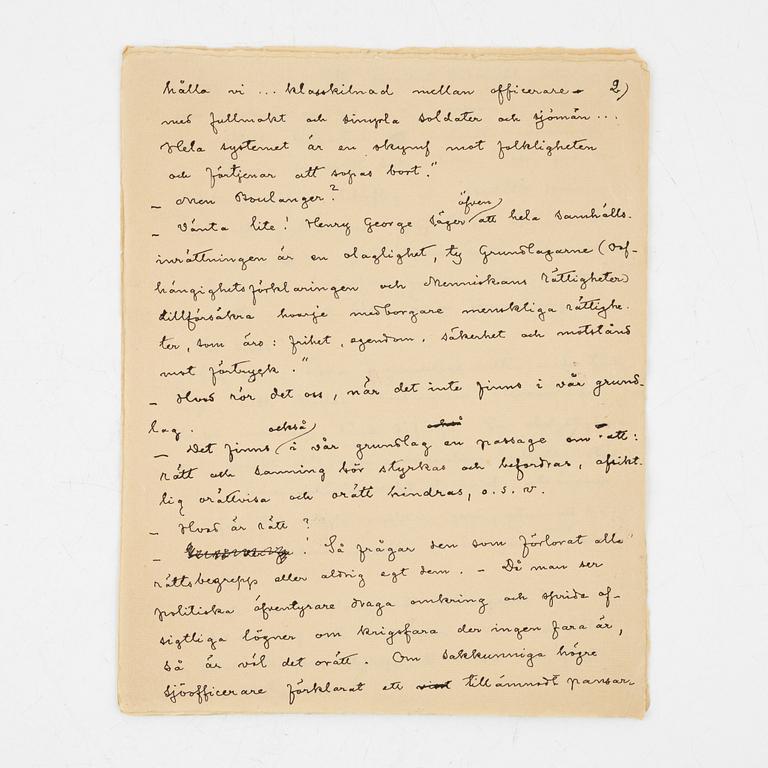 hålla vi ... klasskilnad mellan officerare 2)
med fullmakt och simpla soldater och sjömän ...
Hela systemet är en skymf mot folkligheten
och förtjenar att sopas bort."
– Men Boulanger?
äfven
– Vänta lite! Henry George säger att hela samhälls-
inrättningen är en olaglighet, ty Grundlagarne (Oaf-
hängighetsförklaringen och Menniskans rättigheter)
tillförsäkra hvarje medborgare menskliga rättighe-
ter, som äro: frihet, egendom, säkerhet och motstånd
mot förtryck."
– Hvad rör det oss, när det inte finns i vår grund-
lag.
också också
– Det finns i vår grundlag en passage om att:
rätt och sanning bör styrkas och befordras, afsikt-
lig orättvisa och orätt hindras, o.s.v.
– Hvad är rätt?
– ! Så frågar den som förlorat alla
rättsbegrepp eller aldrig egt dem. – Då man ser
politiska äfventyrare draga omkring och sprida af-
sigtliga lögner om krigsfara der ingen fara är,
så är väl det orätt. Om sakkunniga högre
sjöofficerare förklarat ett tillämnadt pansar-